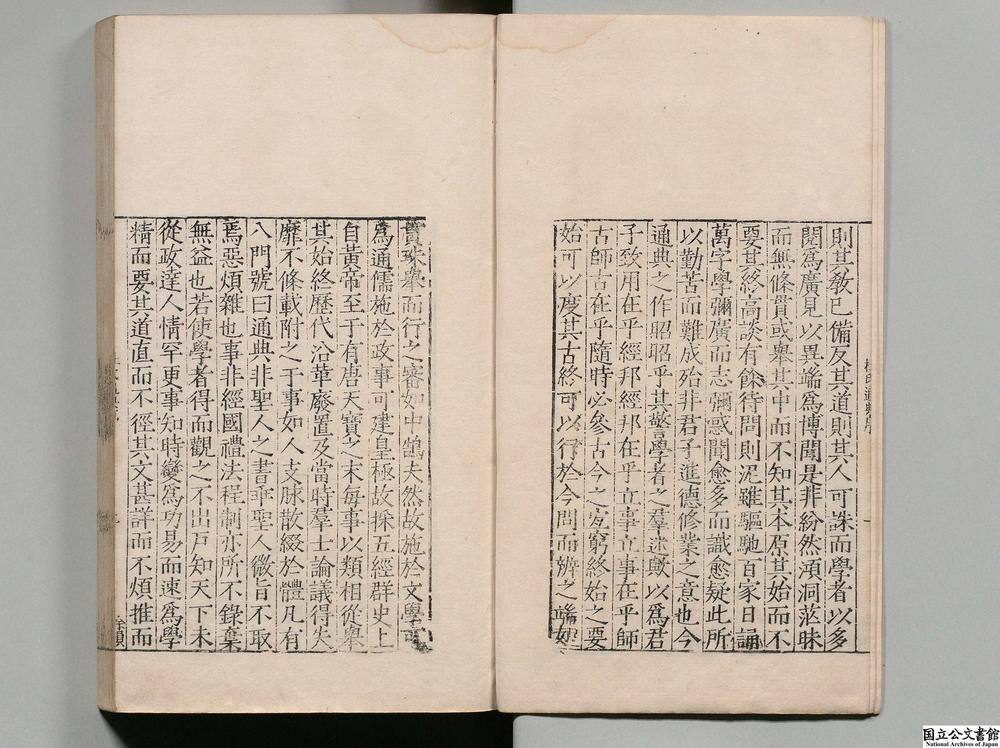 則其教已備反其道則其人可誅而學者以多
閱爲廣見以異端爲博聞是非紛然澒洞茫昧
而無條貫或舉其中而不知其本原其始而不
要其終高談有餘待問則泥雖驅馳百家日誦
萬字學彌廣而志彌惑聞愈多而識愈疑此所
以勤苦而難成殆非君子進德修業之意也今
通典之作昭昭乎其警學者之羣迷歟以爲君
子致用在乎經邦經邦在乎立事立事在乎師
古師古在乎隨時必參古今之宜窮終始之要
始可以度其古終可以行於今問而辨之端如
貫珠舉而行之審如中鵠夫然故施於文學可
爲通儒施於政事可建皇極故採五經群史上
自黃帝至于有唐天寶之末每事以類相從舉
其始終歷代沿革廢置及當時羣士論議得失
靡不條載附之于事如人支脉散綴於體凡有
八門號曰通典非聖人之書乖聖人微旨不取
焉惡煩雜也事非經國禮法程制亦所不錄棄
無益也若使學者得而觀之不出戶知天下未
從政達人情罕更事知時變爲功易而速爲學
精而要其道直而不徑其文甚詳而不煩推而
国立公文書館
National Archives of Japan